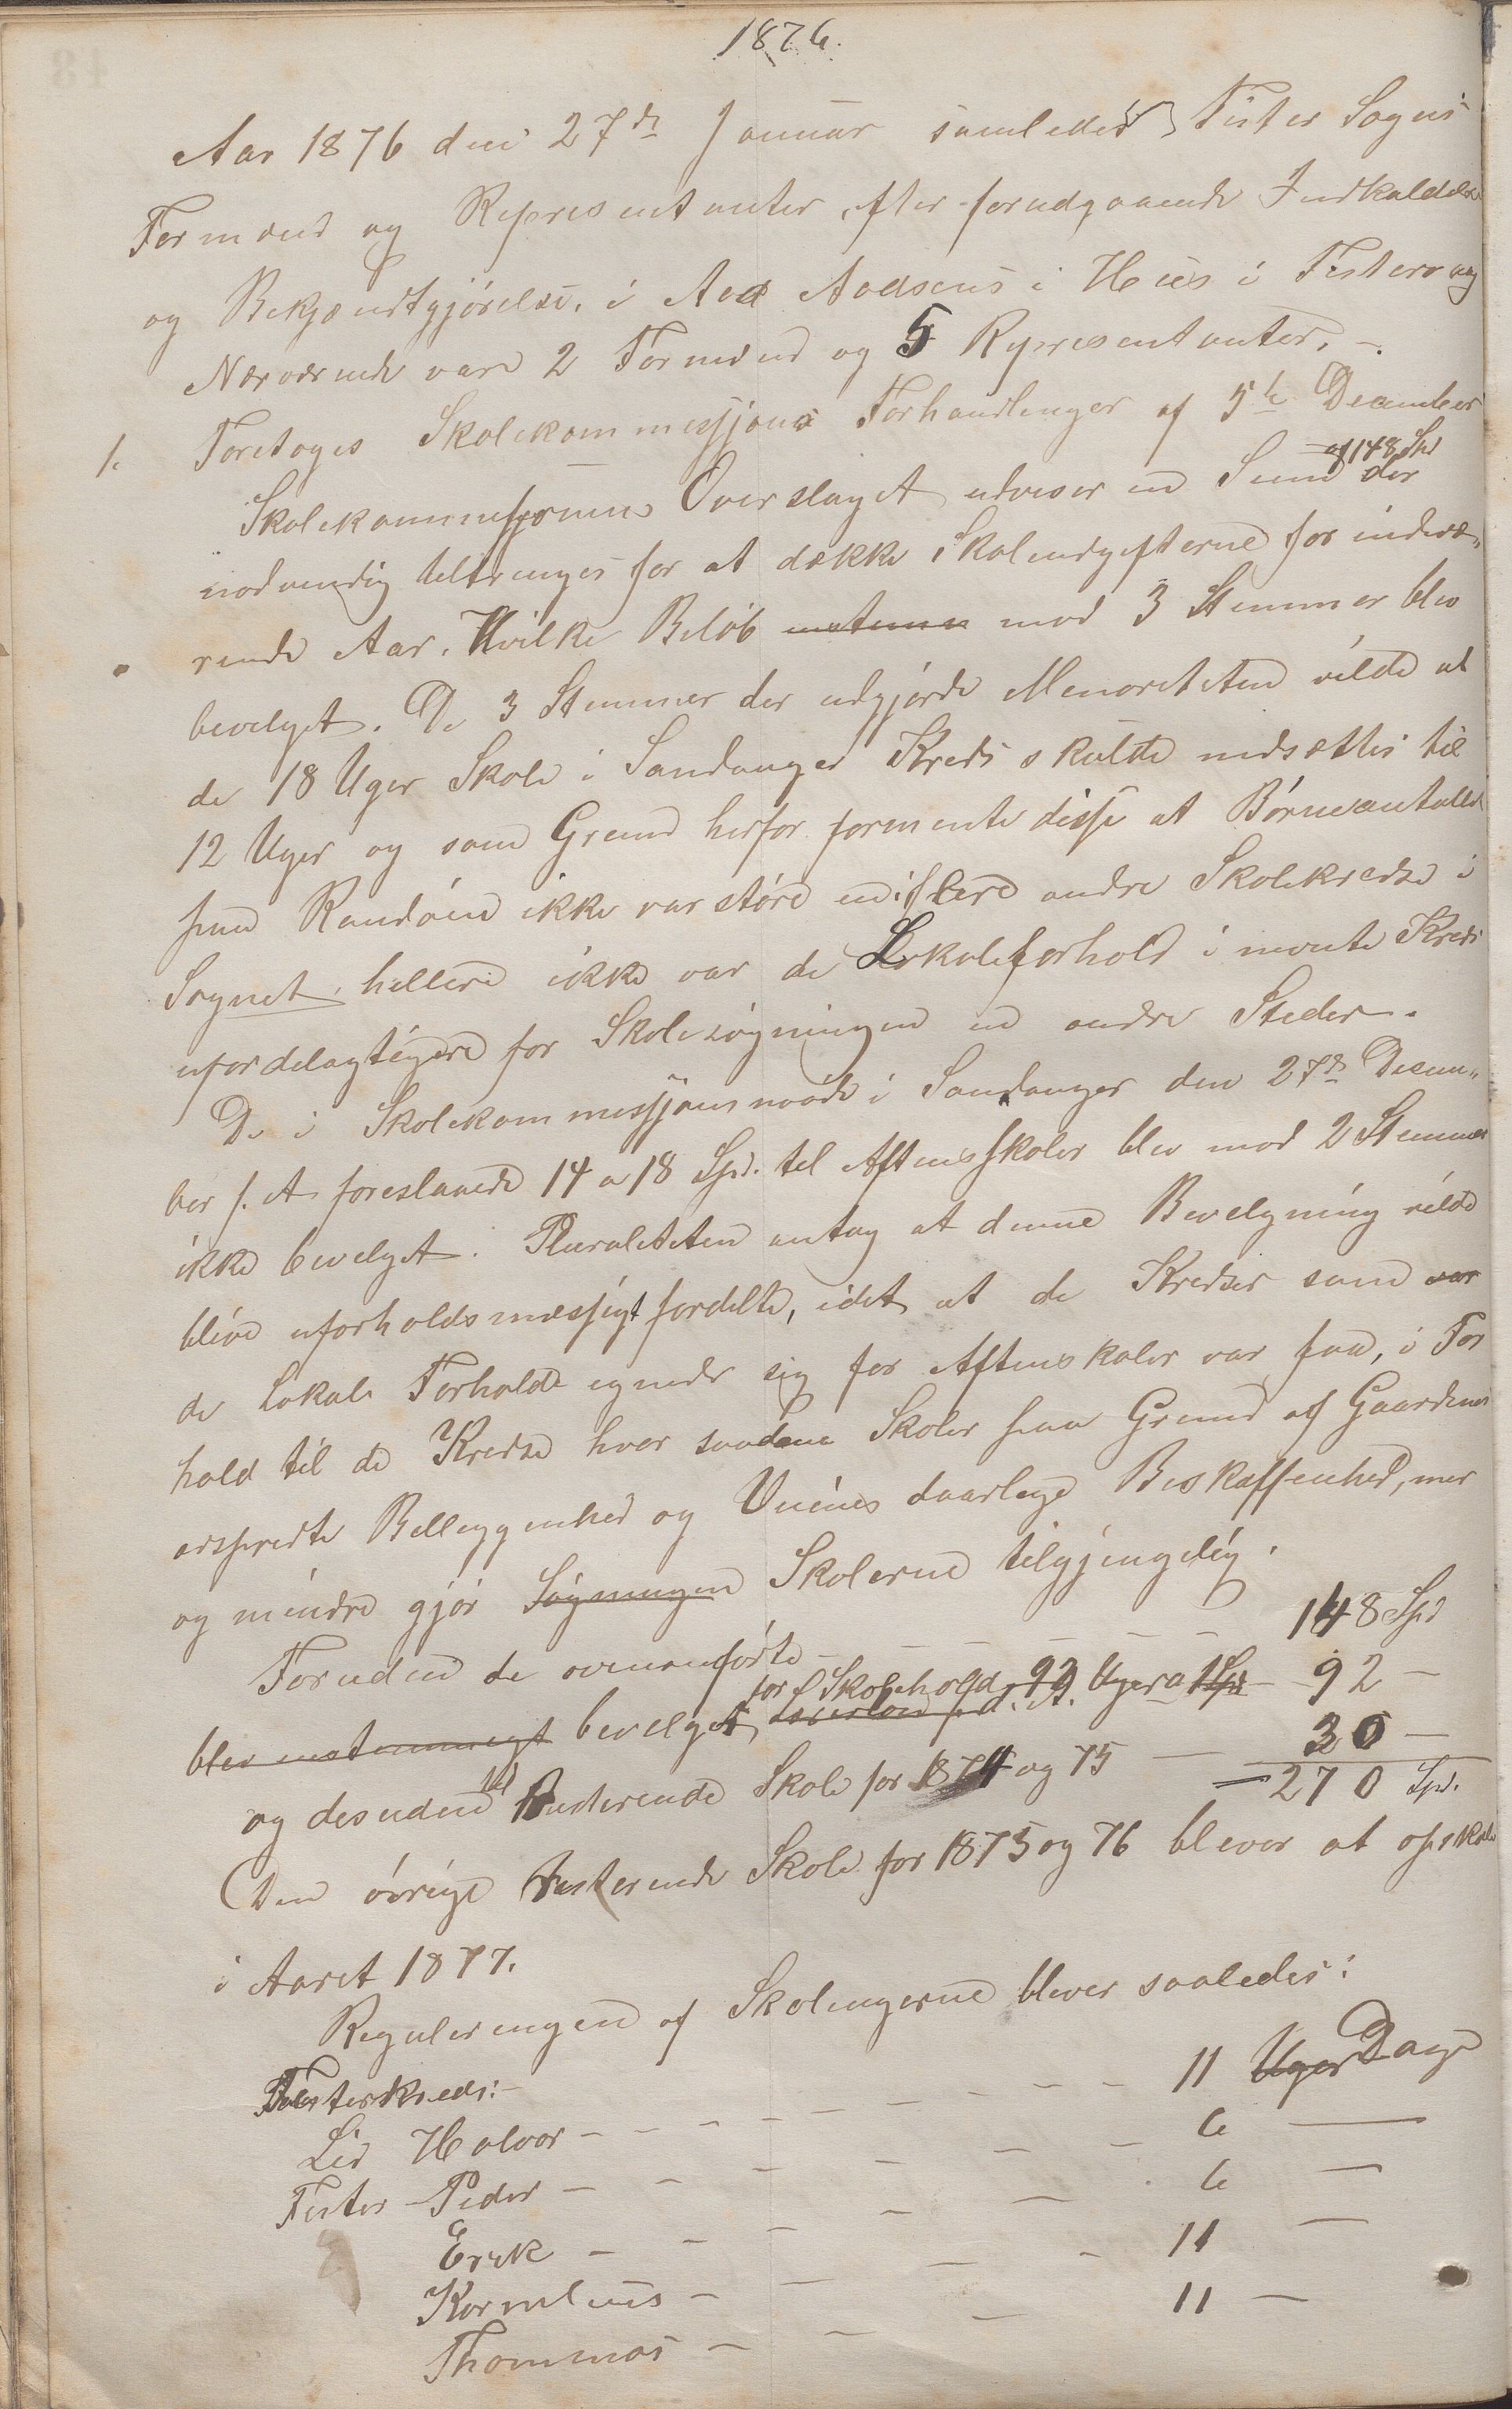 1876.
Aar 1876 den 27de Januar samledes Fister Sogns
Formænd og Representanter efter forudgaaende Indkaldelse
og Bekjendtgjørelse, i Aad Aadsens i Hus i Fistervaag
Nærværende vare 2 Formænd og 5 Representanter. -
1. Foretoges Skolekommissjons Forhandlinger af 5te December
Skolekommissjonens Overslaget udviser en Sum af 148 Spd der
nødvendig tiltrenges for at dække Skoleudgifterne for indevæ„
rende Aar. Hvilke Beløb enstemm mod 3 Stemmer blev
bevelget. De 3 Stemmer der udgjorde Menoriteten vilde at
de 18 Uger Skole i Sandanger Kreds skulde nedsættes til
12 Uger og som Grund herfor formente disse at Børneantallet
paa Randøen ikke var større end i flere andre Skolekredse i
Sognet, hellere ikke var de Lokaleforhold i nævnte Kreds
ufordelagtigere for Skolesøgningen end andre Steder.
De i Skolekommissjonsmøde i Sandanger den 27de Decem„
ber f. A foreslaaede 14 a 18 Spd. til Aftensskoler blev mod 2 Stemmer
ikke bevelget. Pluraliteten antog at denne Bevelgning vilde
blive uforholdsmæssigt fordelte, idet at de Kredser som var
de Lokale Forholde egnede sig for Aftenskoler var faa, i For
hold til de Kredse hvor saadane Skoler paa Grund af Gaardenes
adspredte Belleggenhed og Veienes daarlege Beskaffenhed, mer
og mindre gjør Søgningen Skolerne tilgjengelig.
Foruden de ovenanførte - - - - - 148 Spd
blev enstemmegt bevelget for Skolehold 92 Uger a 1 Spd - 92 -
og desuden til Resterende Skole for 1874 og 75 - 30 -
= 270 Spd.
Den øvrige Resterende Skole for 1875 og 76 blever at opskole
i Aaret 1877.
Reguleringen af Skolengerne blever saaledes:
Fisterkreds:-
Lid Halvor - - - - - - - - 11 Uger Dage
Fister - Peder - - - - - - 6 —
Erik - - - - - 6 —
Kornelius - - - - 11 —
Thommas - - - 11 —